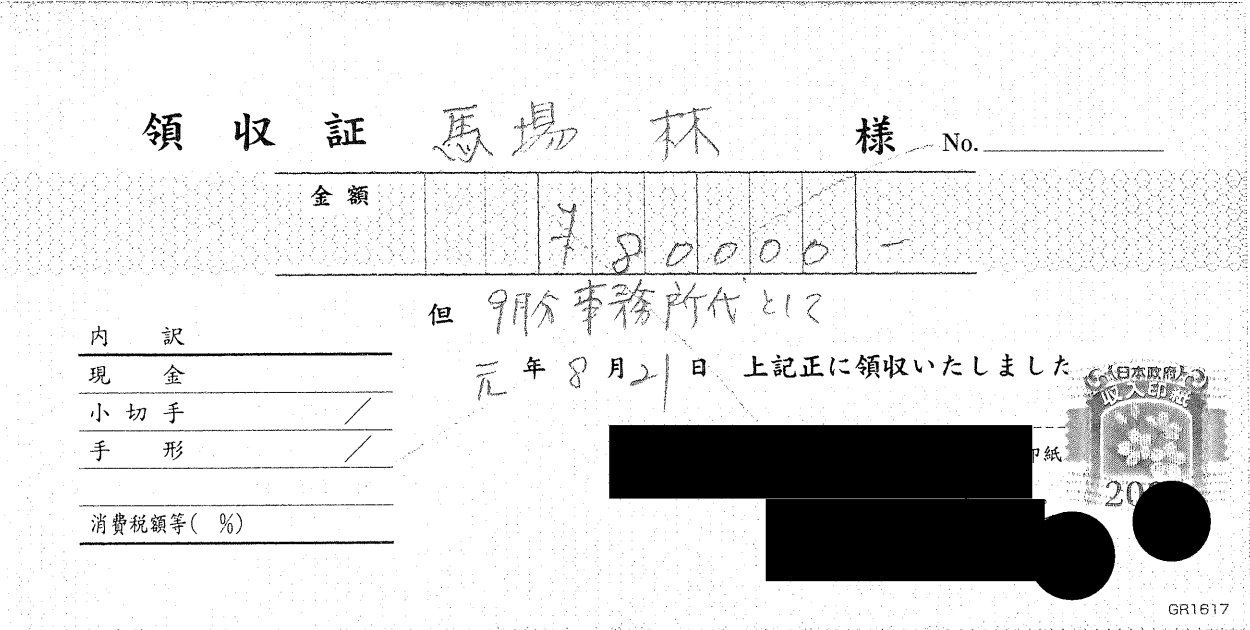 領収証 馬場 林 様 No.
金額 ¥80000-
但 9月分事務所代として
元年8月21日 上記正に領収いたしました
内訳
現金
小切手 /
手形 /
消費税額等( %)
印紙
日本政府
収入印紙
20
GR1617